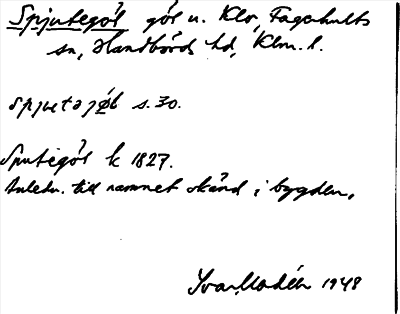 Spjutegöl göl u. Klo, Fagerhults
sn, Handbörds hd, Klm. l.
spjutəjøl s. 30.
Sputegöl k 1827.
Anledn. till namnet okänd i bygden.
Ivar Modéer 1948